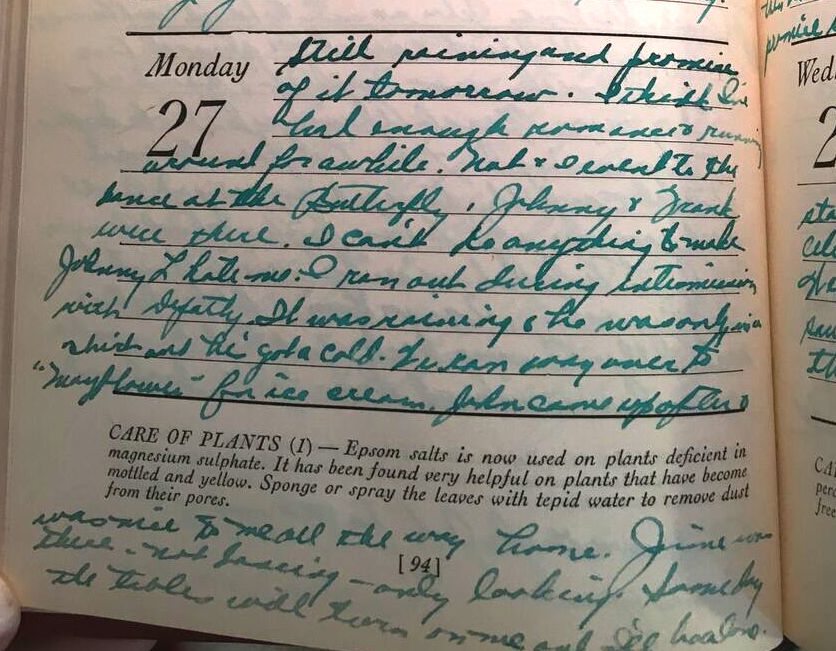 Monday
27
Still raining and promise
of it tomorrow. I think I've
had enough romance & running
around for awhile. Nat & I went to the
dance at the Butterfly. Johnny & Frank
were there. I can't do anything to make
Johnny L hate me. I ran out during intermission
with. It was raining & he was only in a
shirt and he got a cold. We ran way over to
"Mayflower" for ice cream. John came up after &
CARE OF PLANTS (I) — Epsom salts is now used on plants deficient in
magnesium sulphate. It has been found very helpful on plants that have become
mottled and yellow. Sponge or spray the leaves with tepid water to remove dust
from their pores.
was nice to me all the way home. June was
there - not dancing - only looking. Someday
[94]
the tables will turn on me and I'll
Wed
2
CA
per
free